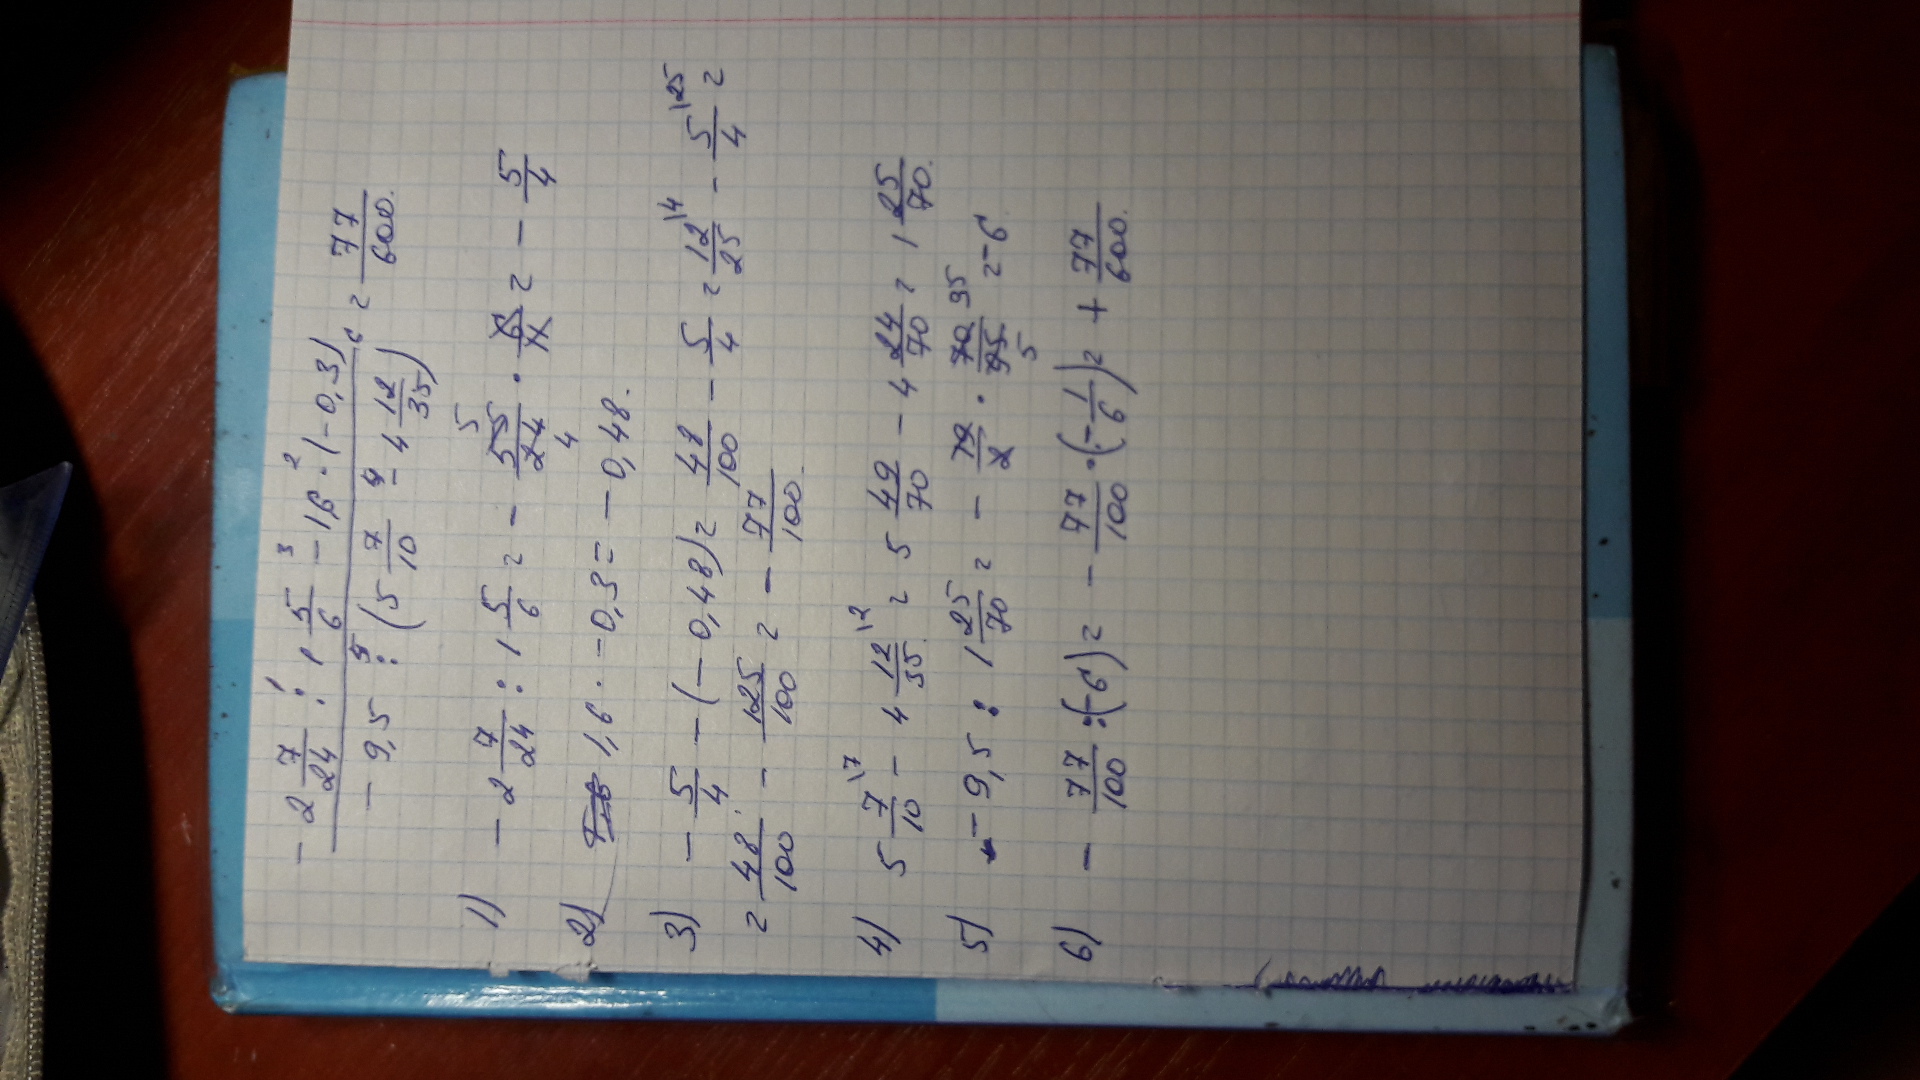 - 2 7/24 : 1 5/6 - 1,6 · (-0,3)
- 9,5 : (5 7/10 - 4 12/35) = 77/600.
1) - 2 7/24 : 1 5/6 = - 55/24 · 6/11 = - 5/4
2) 1,6 · -0,3 = - 0,48.
3) - 5/4 - (- 0,48) = 48/100 - 5/4 = 12/25 - 5/4 =
= 48/100 - 125/100 = - 77/100.
4) 5 7/10 - 4 12/35 = 5 49/70 - 4 24/70 = 1 25/70.
5) - 9,5 : 1 25/70 = - 19/2 · 70/95 = -6
6) - 77/100 : (-6) = - 77/100 · (- 1/6) = + 77/600.